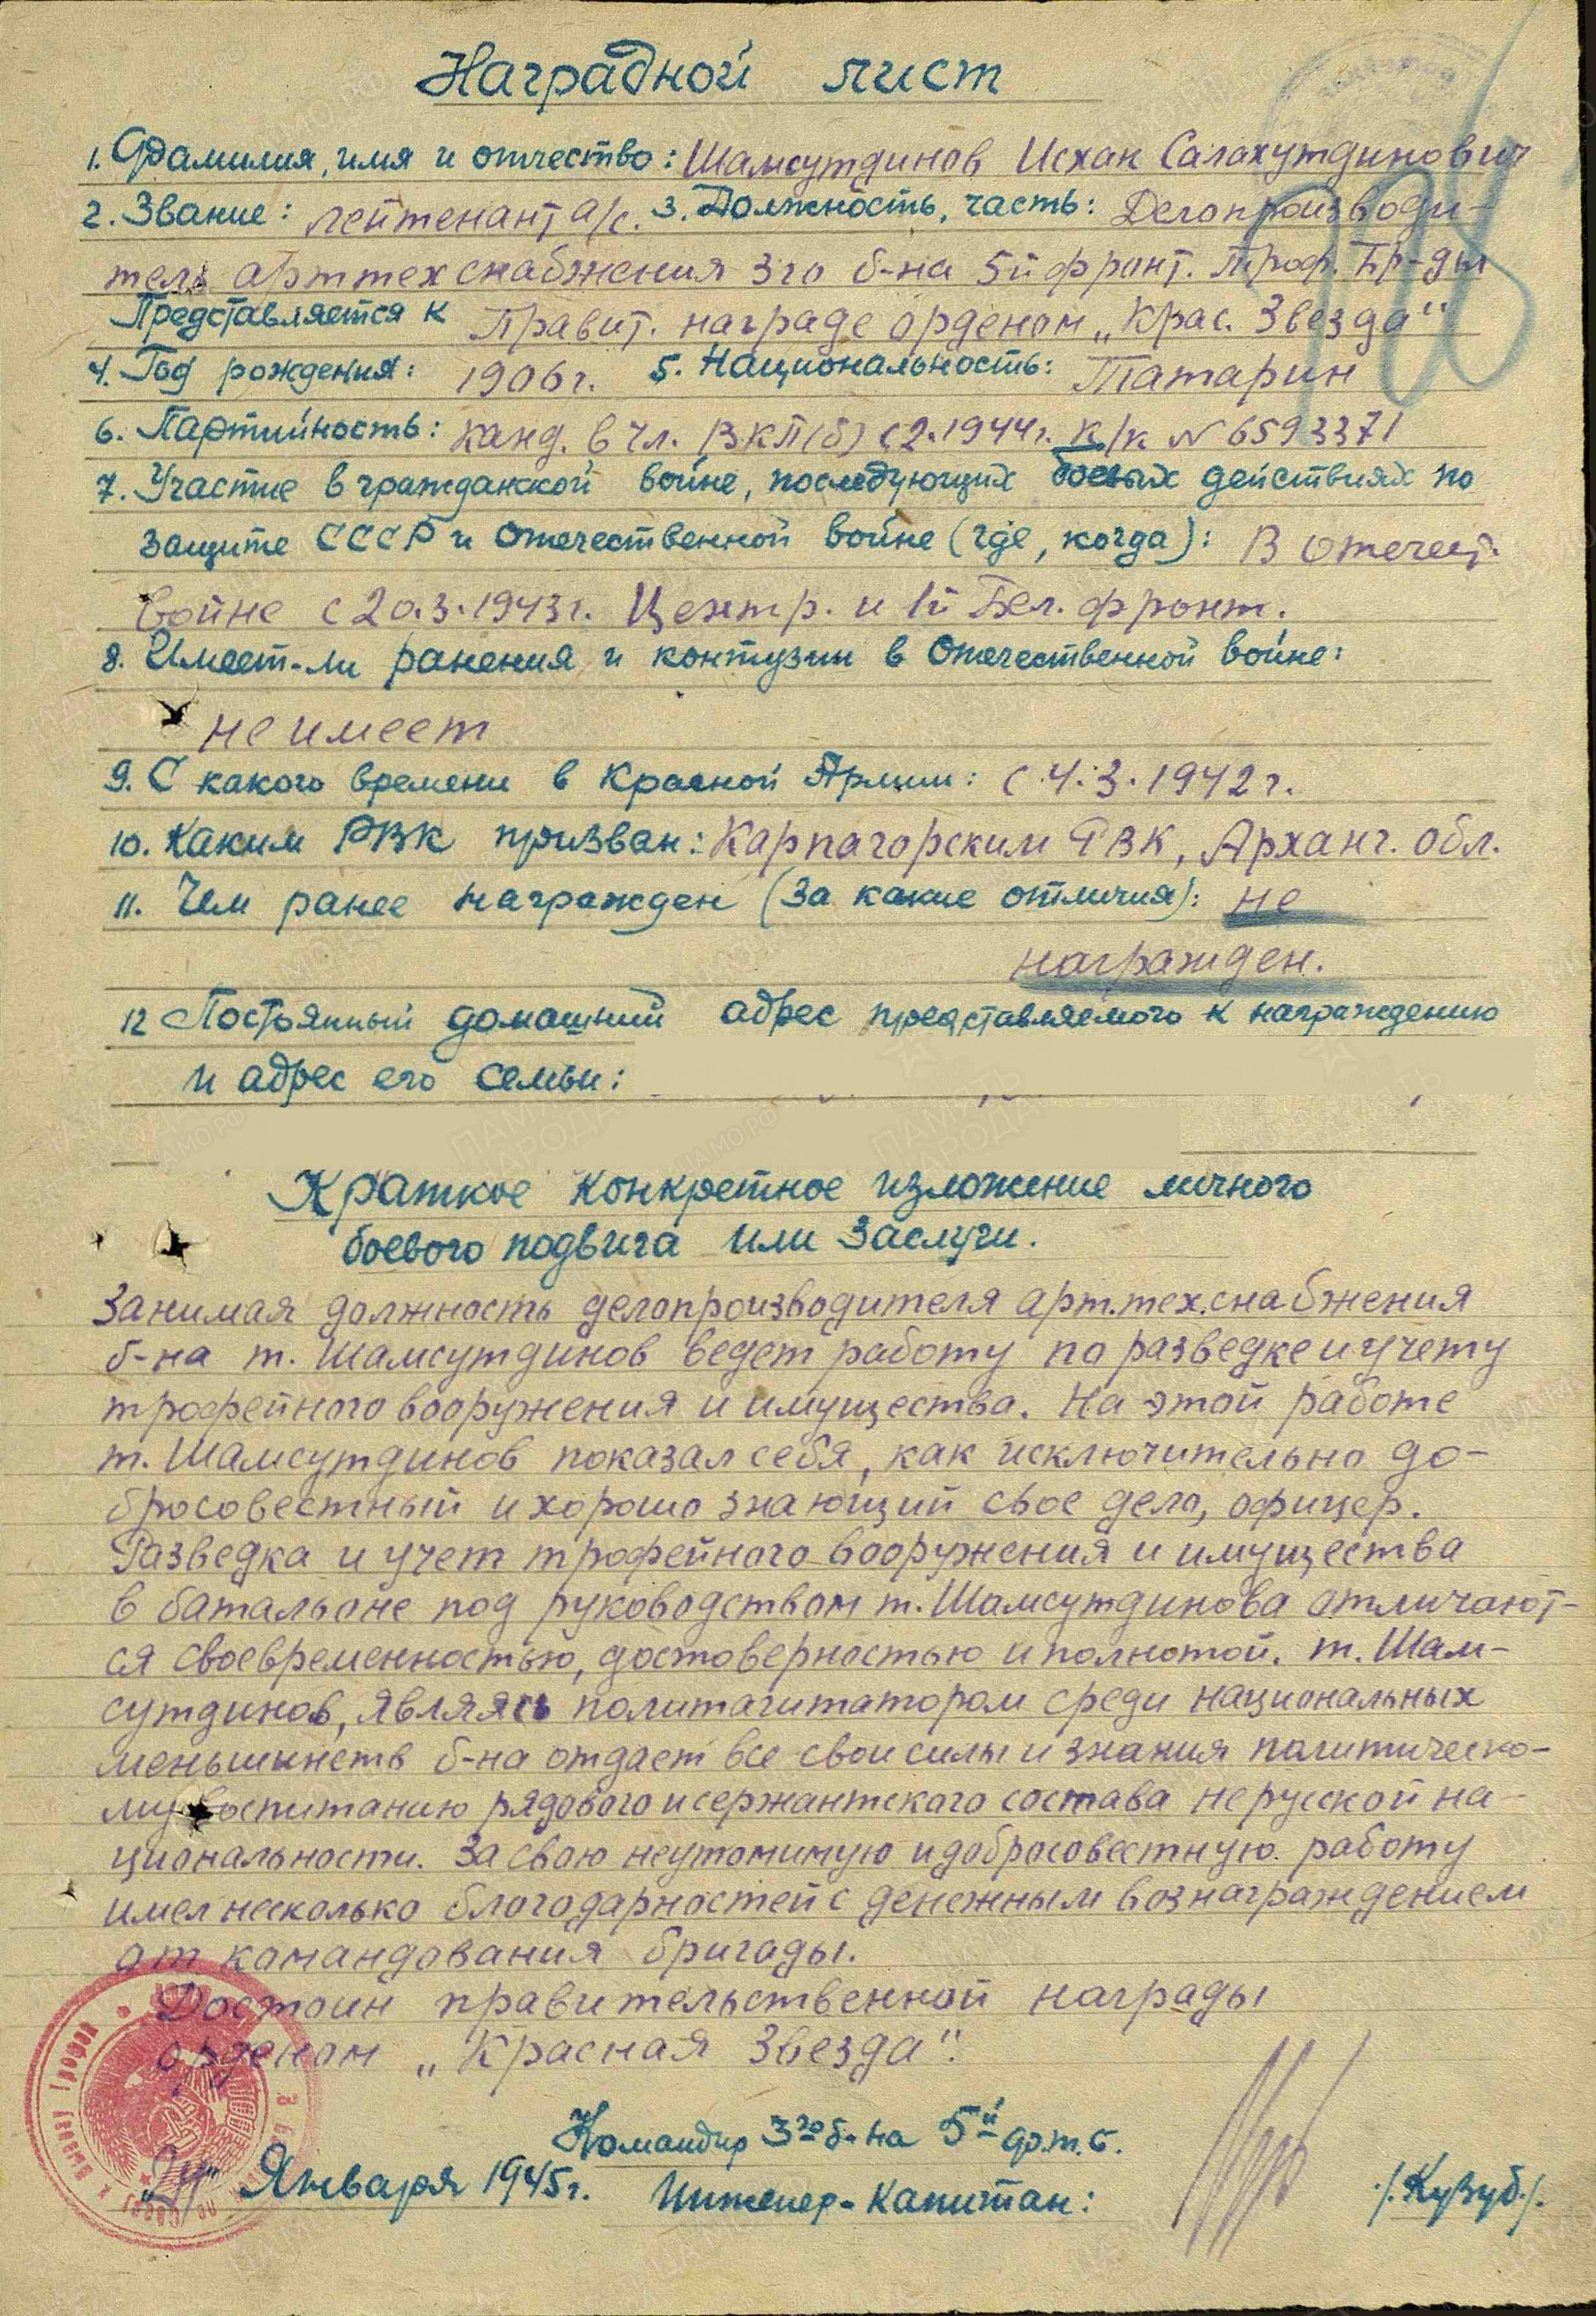 Наградной лист
1. Фамилия, имя и отчество: Шамсутдинов Исхак Салахутдинович
2. Звание: лейтенант а/с. 3. Должность, часть: Делопроизводи-
тель арттехснабжения 3го б-на 5й фронт. Троф. Бр-ды
Представляется к Правит. награде орденом „Крас. Звезда"
4. Год рождения: 1906г. 5. Национальность: Татарин
6. Партийность: канд. в чл. ВКП(б) с 2.1944г. к/к № 6593371
7. Участие в гражданской войне, последующих боевых действиях по
защите СССР и Отечественной войне (где, когда): В отечест.
войне с 20.3.1943г. Центр. и 1й Бел. фронт.
8. Имеет-ли ранения и контузии в Отечественной войне:
не имеет
9. С какого времени в Красной Армии: с 4.3.1942г.
10. Каким РВК призван: Карпагорским РВК, Арханг. обл.
11. Чем ранее награжден (За какие отличия): не
награжден.
12 Постоянный домашний адрес представляемого к награждению
и адрес его семьи:
Краткое конкретное изложение личного
боевого подвига или заслуги.
Занимая должность делопроизводителя арт.тех.снабжения
б-на т. Шамсутдинов ведет работу по разведке и учету
трофейного вооружения и имущества. На этой работе
т. Шамсутдинов показал себя, как исключительно до-
бросовестный и хорошо знающий свое дело, офицер.
Разведка и учет трофейного вооружения и имущества
в батальоне под руководством т. Шамсутдинова отличают-
ся своевременностью, достоверностью и полнотой. т. Шам-
сутдинов, являясь политагитатором среди национальных
меньшинств б-на отдает все свои силы и знания политическо-
му воспитанию рядового и сержантского состава не русской на-
циональности. За свою неутомимую и добросовестную работу
имел несколько благодарностей с денежным вознаграждением
от командования бригады.
Достоин правительственной награды
орденом „Красная Звезда".
Командир 3го б-на 5й ф.т.б.
„24" Января 1945г. Инженер-Капитан: /.Кузуб./.